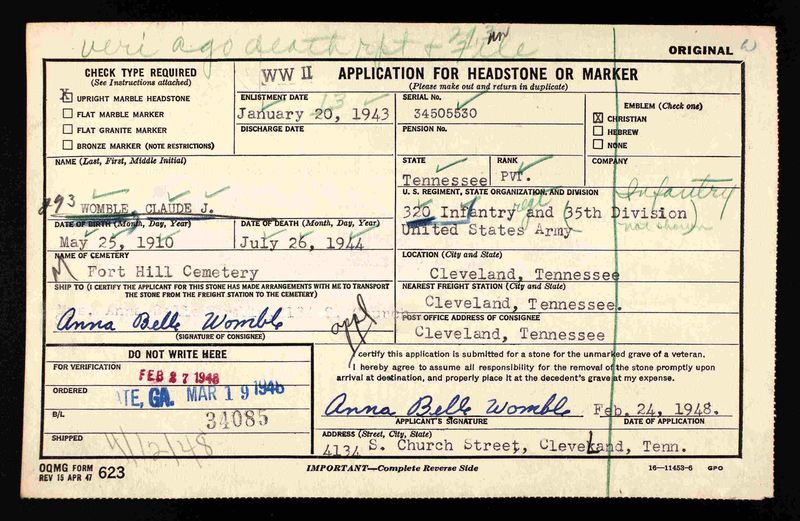 veri ago death rpt + File
ORIGINAL
CHECK TYPE REQUIRED
(See Instructions attached)
X UPRIGHT MARBLE HEADSTONE
FLAT MARBLE MARKER
FLAT GRANITE MARKER
BRONZE MARKER (NOTE RESTRICTIONS)
WW II
APPLICATION FOR HEADSTONE OR MARKER
(Please make out and return in duplicate)
ENLISTMENT DATE
13
January 20, 1943
DISCHARGE DATE
SERIAL No.
34505530
PENSION No.
EMBLEM (Check one)
X CHRISTIAN
HEBREW
NONE
NAME (Last, First, Middle Initial)
WOMBLE, CLAUDE J.
STATE
Tennessee
RANK
PVT.
COMPANY
U. S. REGIMENT, STATE ORGANIZATION, AND DIVISION
Infantry
regt
320 Infantry and (35th Division)
United States Army
not shown
DATE OF BIRTH (Month, Day, Year)
May 25, 1910
DATE OF DEATH (Month, Day, Year)
July 26, 1944
NAME OF CEMETERY
Fort Hill Cemetery
LOCATION (City and State)
Cleveland, Tennessee
SHIP TO (I CERTIFY THE APPLICANT FOR THIS STONE HAS MADE ARRANGEMENTS WITH ME TO TRANSPORT
THE STONE FROM THE FREIGHT STATION TO THE CEMETERY)
NEAREST FREIGHT STATION (City and State)
Cleveland, Tennessee.
Anna Belle Womble
(SIGNATURE OF CONSIGNEE)
appl
POST OFFICE ADDRESS OF CONSIGNEE
Cleveland, Tennessee
DO NOT WRITE HERE
FOR VERIFICATION
FEB 27 1948
ORDERED
ATE, GA. MAR 19 1948
B/L
34085
SHIPPED
4/12/48
I certify this application is submitted for a stone for the unmarked grave of a veteran.
I hereby agree to assume all responsibility for the removal of the stone promptly upon
arrival at destination, and properly place it at the decedent's grave at my expense.
Anna Belle Womble
Feb. 24, 1948.
APPLICANT'S SIGNATURE
DATE OF APPLICATION
ADDRESS (Street, City, State)
4134 S. Church Street, Cleveland, Tenn.
OQMG FORM
REV 15 APR 47
623
IMPORTANT—Complete Reverse Side
16—11453-6 GPO